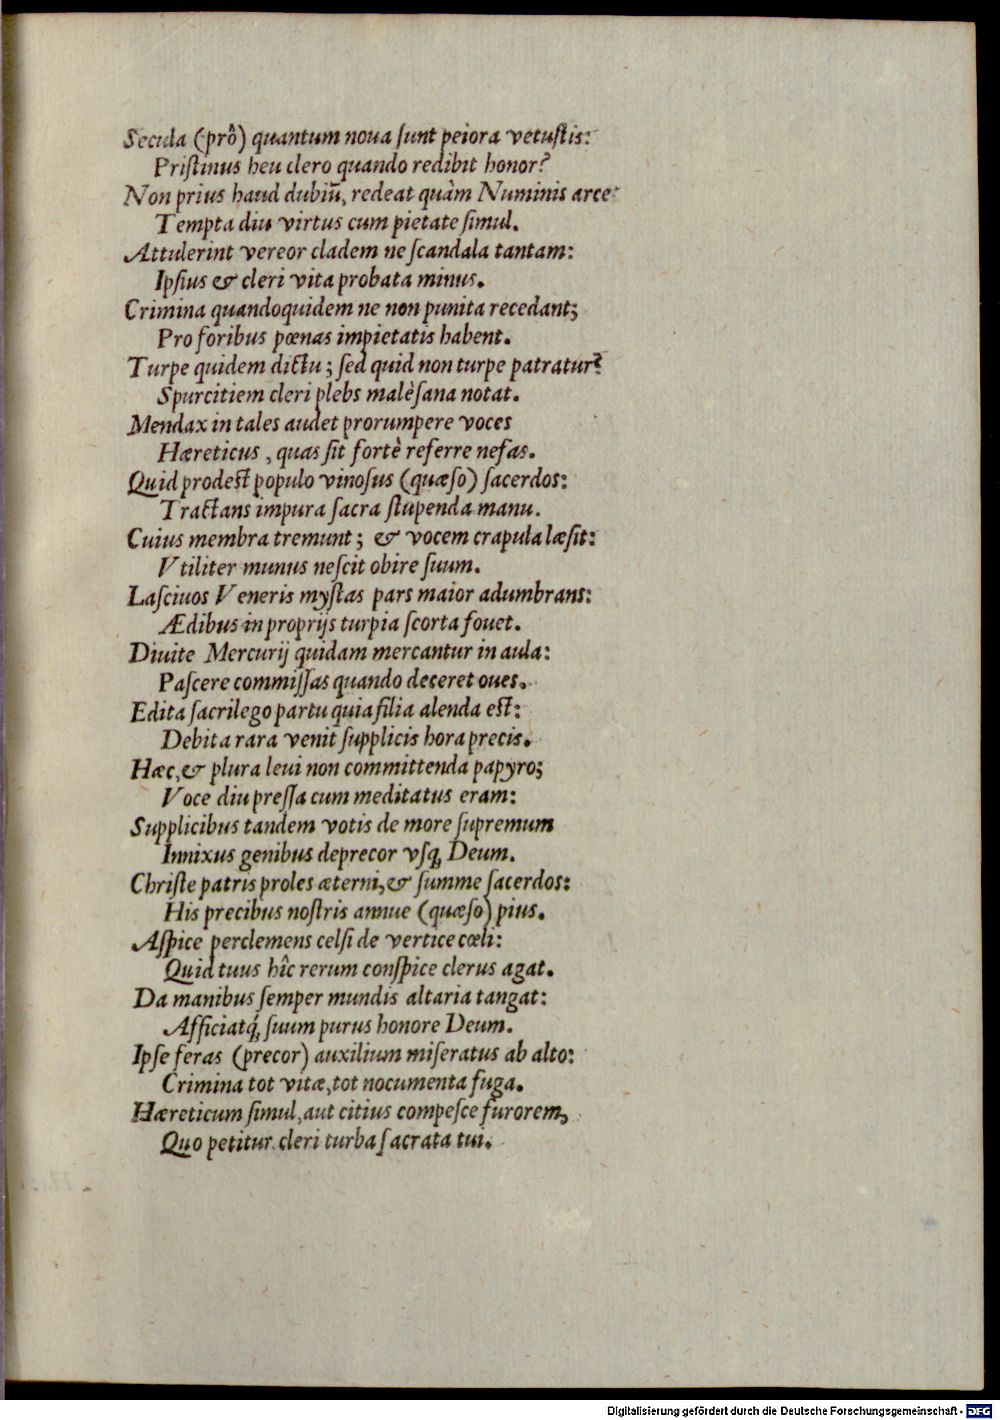 Secula (prô) quantum noua ſunt peiora vetuſtis:
Priſtinus heu clero quando redibit honor?
Non prius haud dubiū, redeat quàm Numinis arce:
Tempta diu virtus cum pietate ſimul.
Attulerint vereor cladem ne ſcandala tantam:
Ipſius & cleri vita probata minus.
Crimina quandoquidem ne non punita recedant;
Pro foribus pœnas impietatis habent.
Turpe quidem dictu; ſed quid non turpe patratur?
Spurcitiem cleri plebs malèſana notat.
Mendax in tales audet prorumpere voces
Hæreticus, quas ſit fortè referre nefas.
Quid prodeſt populo vinoſus (quæſo) ſacerdos:
Tractans impura ſacra ſtupenda manu.
Cuius membra tremunt; & vocem crapula læſit:
Vtiliter munus neſcit obire ſuum.
Laſciuos Veneris myſtas pars maior adumbrans:
Ædibus in proprijs turpia ſcorta fouet.
Diuite Mercurij quidam mercantur in aula:
Paſcere commiſſas quando deceret oues.
Edita ſacrilego partu quia filia alenda eſt:
Debita rara venit ſupplicis hora precis.
Hæc, & plura leui non committenda papyro;
Voce diu preſſa cum meditatus eram:
Supplicibus tandem votis de more ſupremum
Innixus genibus deprecor vſq; Deum.
Chriſte patris proles æterni, & ſumme ſacerdos:
His precibus noſtris annue (quæſo) pius.
Aſpice perclemens celſi de vertice cœli:
Quid tuus hîc rerum conſpice clerus agat.
Da manibus ſemper mundis altaria tangat:
Afficiatq́; ſuum purus honore Deum.
Ipſe feras (precor) auxilium miſeratus ab alto:
Crimina tot vitæ, tot nocumenta fuga.
Hæreticum ſimul, aut citius compeſce furorem,
Quo petitur cleri turba ſacrata tui.
Digitalisierung gefördert durch die Deutsche Forschungsgemeinschaft - DFG